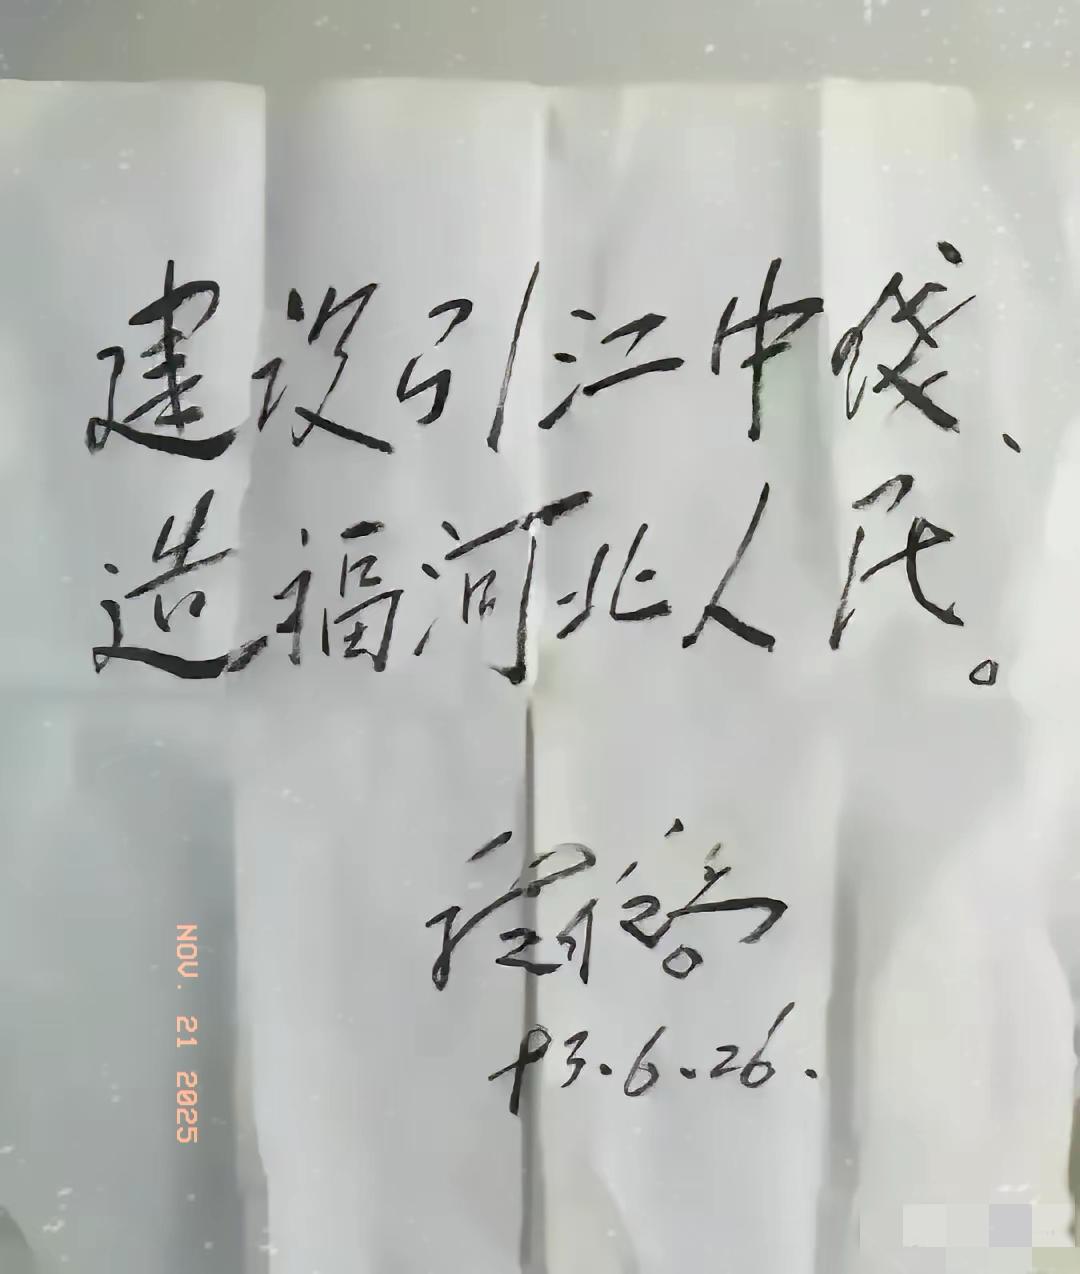 建设引江中线、
造福河北人民。
93.6.26.
NOV. 21 2025